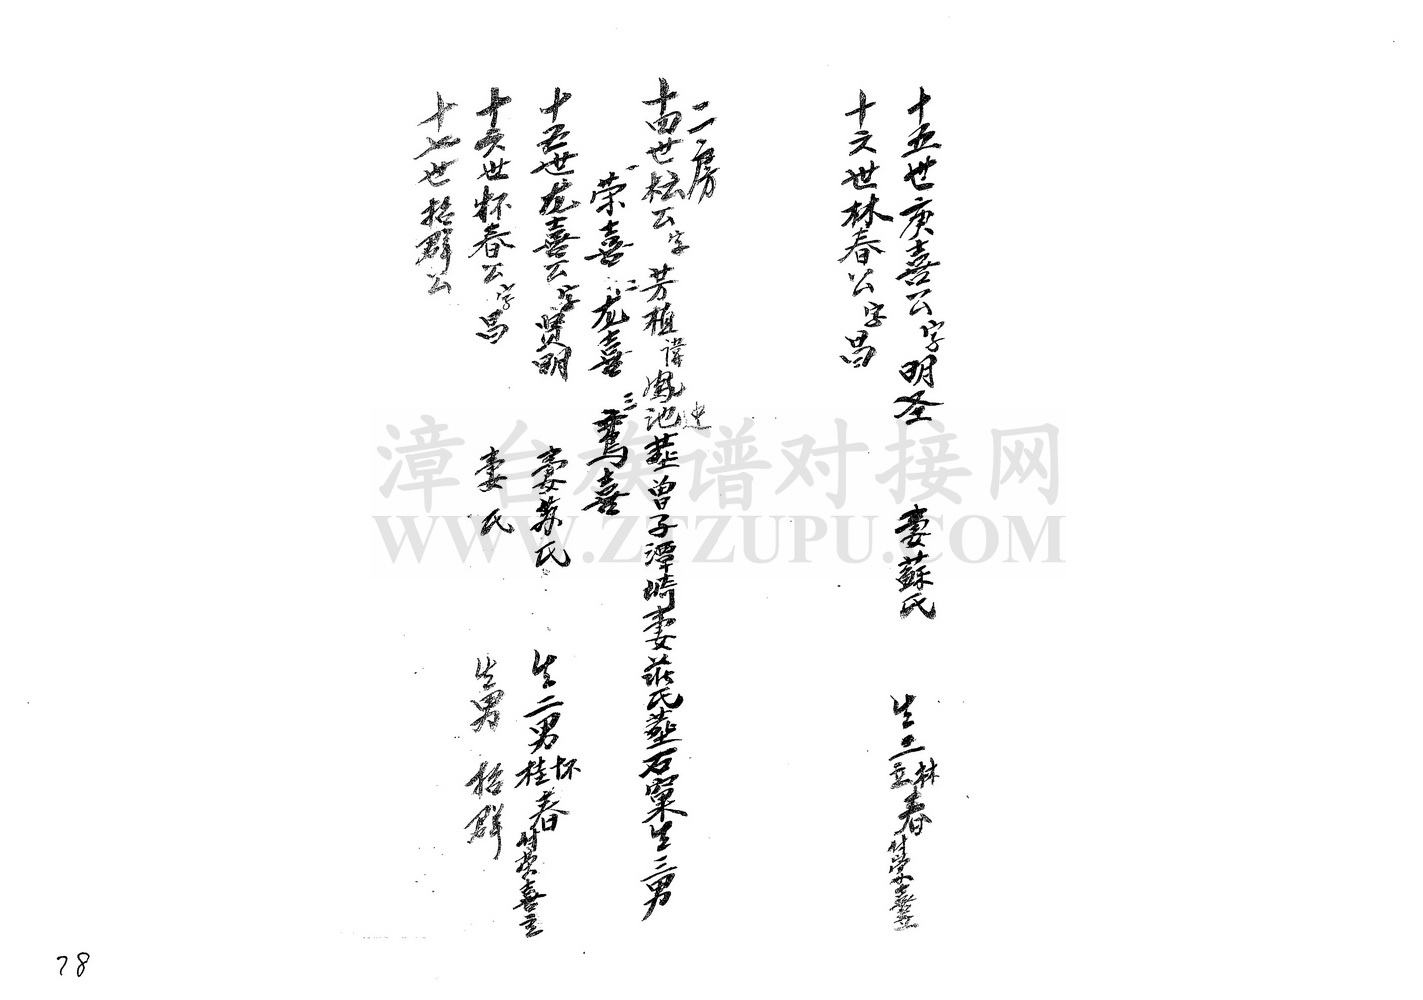 十五世庚喜公字明圣 妻蘇氏 生二林立春付荣喜立
十六世林春公字昌
二房
十四世枟公字芳植諱鳳池塟曾子潭崎妻莊氏塟石窠生三男
建
一荣喜 二龙喜 三喜
十五世龙喜公字贤明 妻苏氏 生二男怀桂春付荣喜立
十六世怀春公字昌 妻氏 生男拾群
十七世拾群公
漳台族谱对接网
WWW.ZTZUPU.COM
78